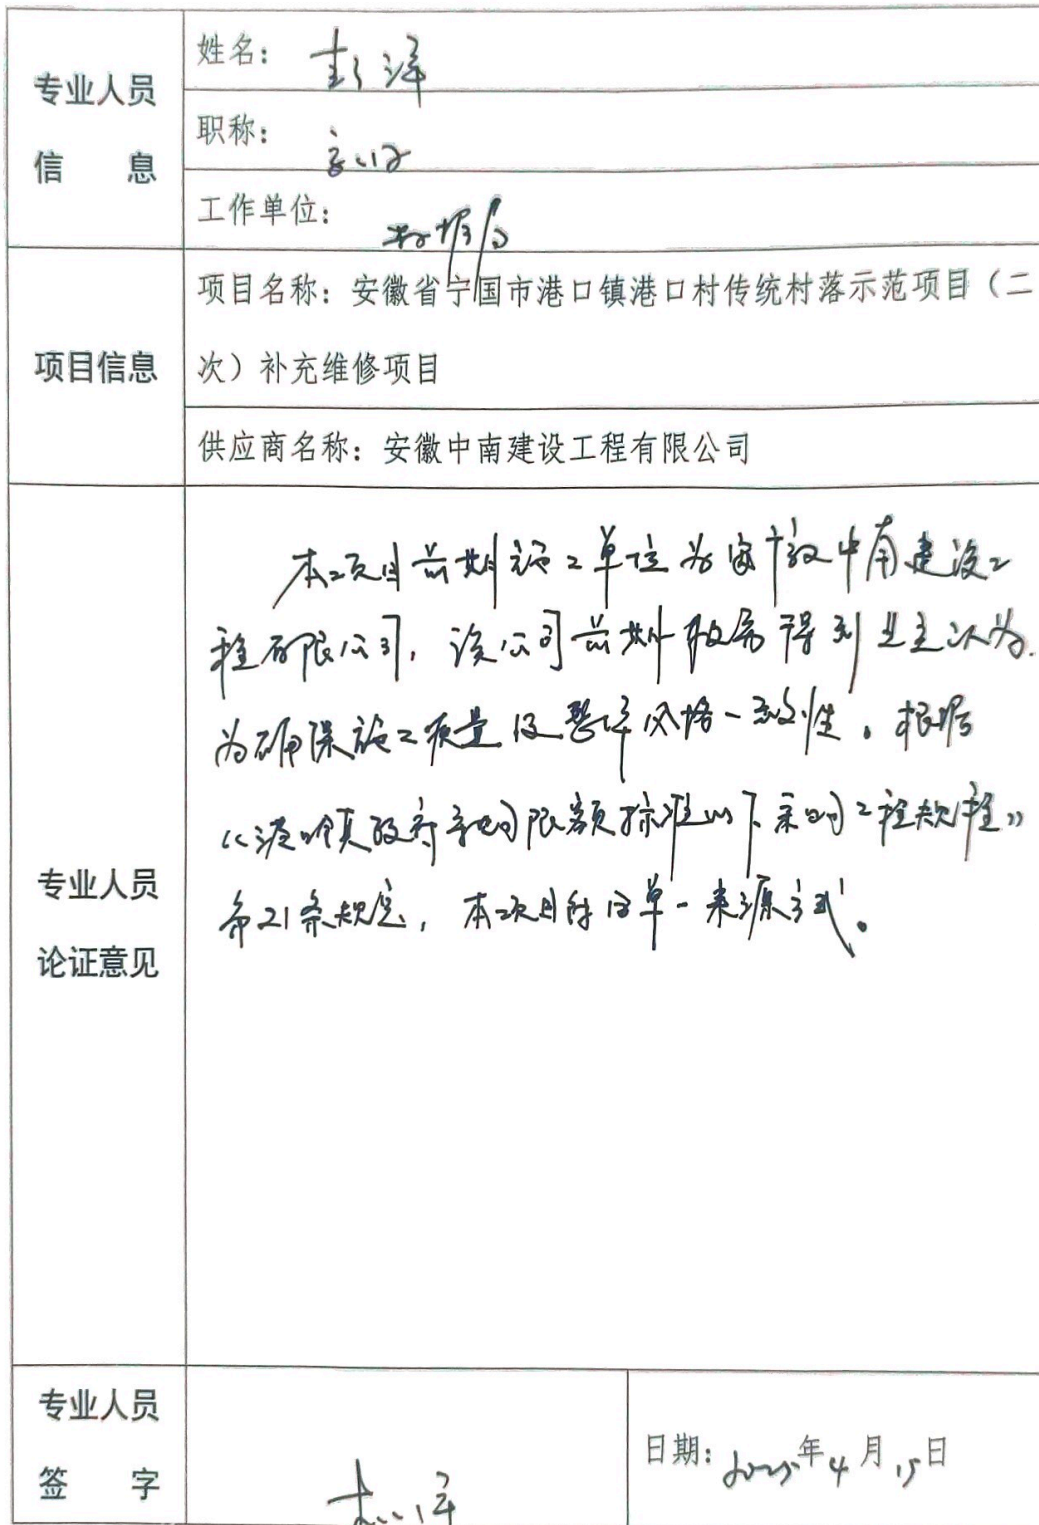 专业人员
信 息
姓名：彭洋
职称：高工
工作单位：
项目信息
项目名称：安徽省宁国市港口镇港口村传统村落示范项目（二
次）补充维修项目
供应商名称：安徽中南建设工程有限公司
专业人员
论证意见
本项目前期施工单位为安徽中南建设工
程有限公司，该公司前期服务得到业主认为.
为确保施工质量及整体风格一致性。根据
《港口镇政府采购限额标准以下采购工程规程》
第21条规定，本项目采用单一来源方式。
专业人员
签 字
彭洋
日期：2025年4月15日